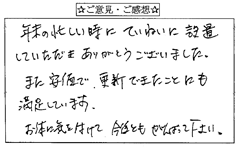 ☆ご意見・ご感想☆
年末の忙しい時に ていねいに 設置
していただき ありがとうございました。
また 安価で、更新できたことにも
満足しています。
お体に気を付けて 今後とも がんばって下さい。